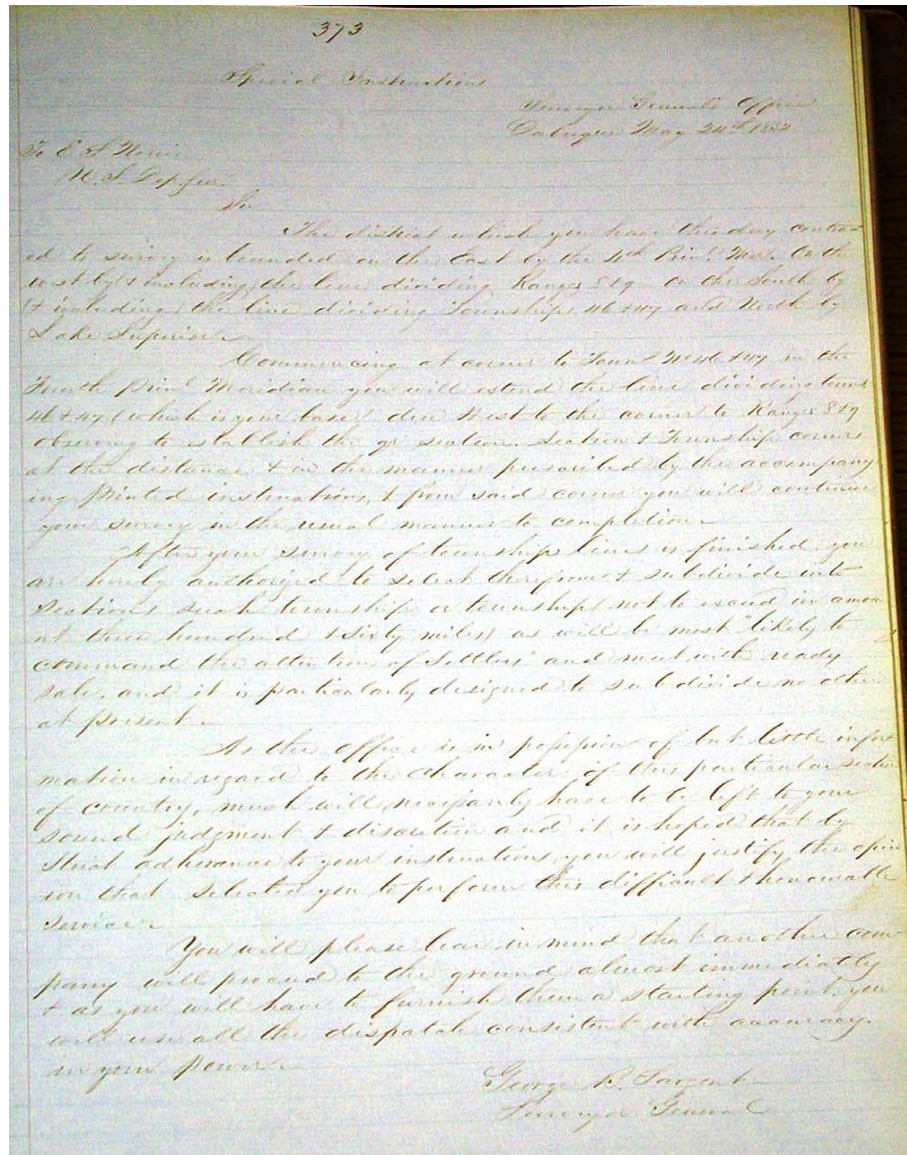 373
Special Instructions
Surveyor General's Office
Dubuque May 24th 1852
To E S Norris
U. S. Dep Sur.
Sir
The district which you have this day contract
ed to survey is bounded on the East by the 4th Prinl. Mer. On the
West by (& including) the line dividing Ranges 8 & 9 On the South by
(& including) the line dividing Townships 46 & 47 and North by
Lake Superior
Commencing at corner to Towns Nos 46 & 47 in the
Fourth Prinl Meridian you will extend the line dividing towns
46 & 47 (which is your base) due West to the corner to Ranges 8 & 9
observing to establish the qr section. Section & Township corners
at the distance & in the manner prescribed by the accompany
ing printed instructions, & from said corner you will continue
your survey in the usual manner to completion
After your survey of township lines is finished, you
are hereby authorized to select therefrom & subdivide into
Sections such township or townships (not to exceed in amou
nt three hundred & sixty miles) as will be most "likely to
command the attention of Settlers" and meet with ready
sale, and it is particularly designed to subdivide no other
at present
As the office is in possession of but little infor
mation in regard to the character of this particular section
of country, much will necessarily have to be left to your
sound judgment & discretion and it is hoped that by
strict adherance to your instructions, you will justify the opin
ion that selected you to perform this difficult & honourable
Service
You will please bear in mind that another com
pany will proceed to the ground almost immediately
& as you will have to furnish them a starting point, you
will use all the dispatch consistent with accuracy.
in your power
George B. Sargent
Surveyor General